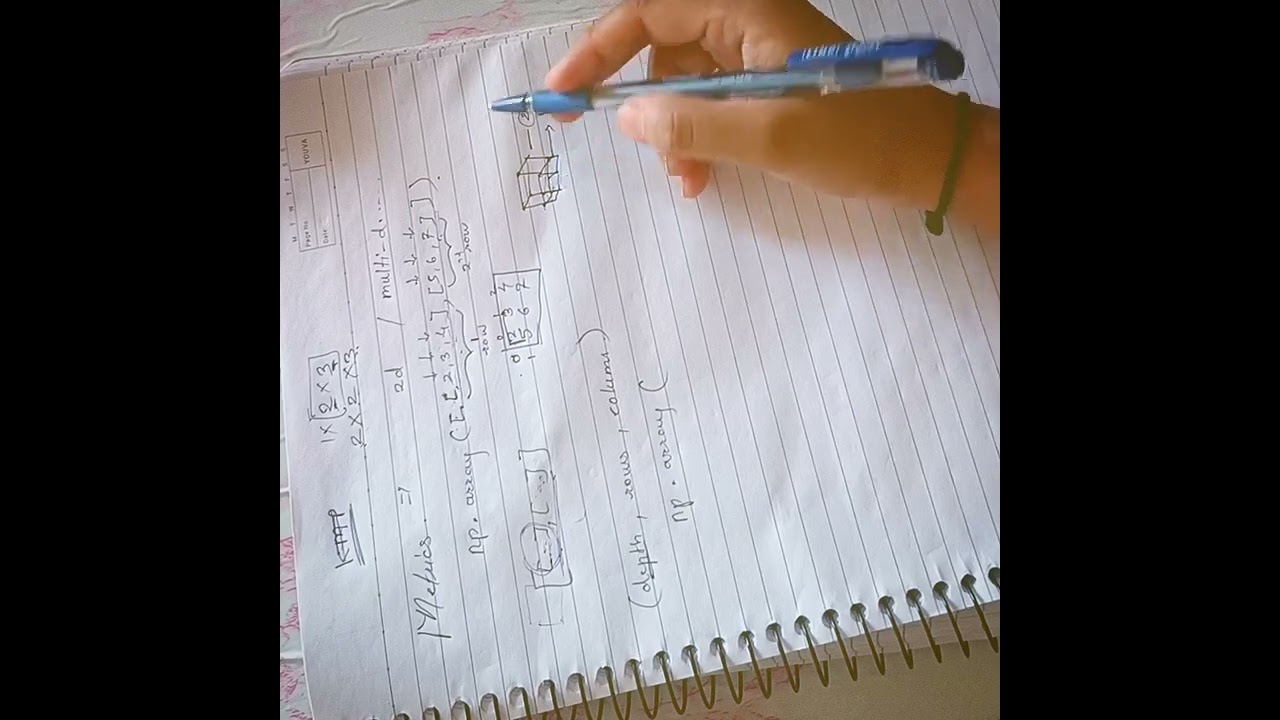 M T W T F S
Page No.
Date
YOUVA
1 × [2 × 3]
2 × 2 × 3
2d / multi-d....
=>
np. array ( [ [ 2, 3, 4 ], [ 5, 6, 7 ] ] ).
1 row
2nd row
0 1 2
0 2 3 4
1 5 6 7
(depth, rows, colums)
np. array (